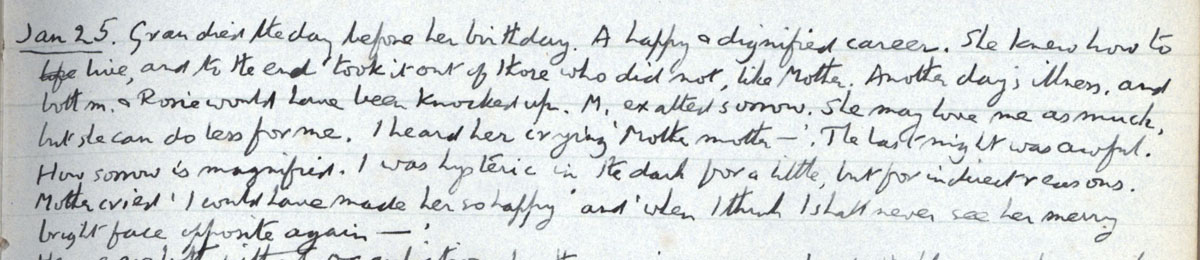 Jan 25. Gran died the day before her birthday. A happy & dignified career. She knew how to
live, and to the end took it out of those who did not, like Mother. Another day's illness, and
both m. & Rosie would have been knocked up. M. exalted sorrow. She may love me as much,
but she can do less for me. I heard her crying 'Mother mother —'. The last night was awful.
How sorrow is magnified. I was hysteric in the dark for a little, but for indirect reasons.
Mother cried 'I could have made her so happy' and 'when I think I shall never see her merry
bright face opposite again —'